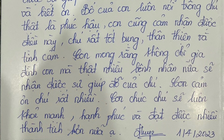 và biết ơn. Bố của con luôn nói rằng chú
thật là phúc hậu, con cũng cảm nhận được
điều này, chú rất tốt bụng, thân thiện và
tình cảm. Con mong rằng không để gia
đình con mà thật nhiều bệnh nhân nữa sẽ
nhận được sự giúp đỡ của chú. Con cảm
ơn chú rất nhiều. Con chúc chú sẽ luôn
khỏe mạnh, hạnh phúc và đạt được nhiều
thành tích hơn nữa ạ. 1/4/202